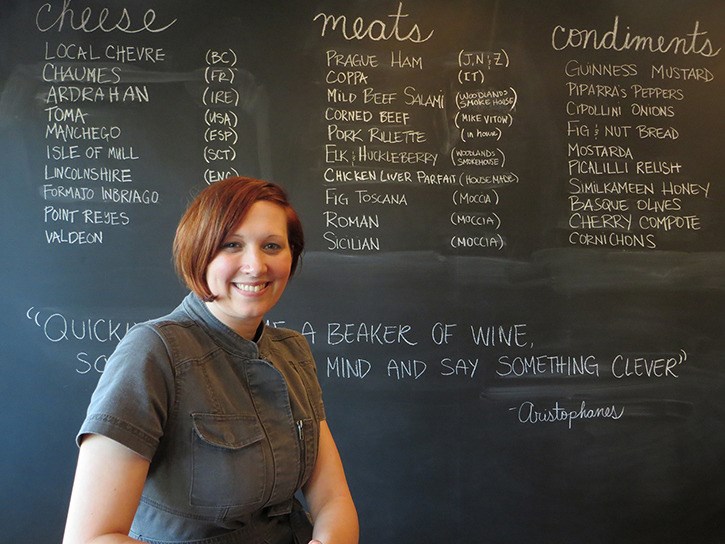 cheese
LOCAL CHEVRE (BC)
CHAUMES (FR)
ARDRAHAN (IRE)
TOMA (USA)
MANCHEGO (ESP)
ISLE OF MULL (SCT)
LINCOLNSHIRE (ENG
FORMAJO INBRIAGO
POINT REYES
VALDEON
meats
PRAGUE HAM (J,N & Z)
COPPA (IT)
MILD BEEF SALAMI (WOODLANDS SMOKE HOUSE)
CORNED BEEF (MIKE VITOW)
PORK RILLETTE (in house)
ELK & HUCKLEBERRY (WOODLANDS SMOKEHOUSE)
CHICKEN LIVER PARFAIT (HOUSE MADE)
FIG TOSCANA (MOCCIA)
ROMAN (MOCCIA)
SICILIAN (MOCCIA)
condiments
GUINNESS MUSTARD
PIPARRA'S PEPPERS
CIPOLLINI ONIONS
FIG & NUT BREAD
MOSTARDA
PICALILLI RELISH
SIMILKAMEEN HONEY
BASQUE OLIVES
CHERRY COMPOTE
CORNICHONS
"QUICK A BEAKER OF WINE,
MIND AND SAY SOMETHING CLEVER"
-Aristophanes